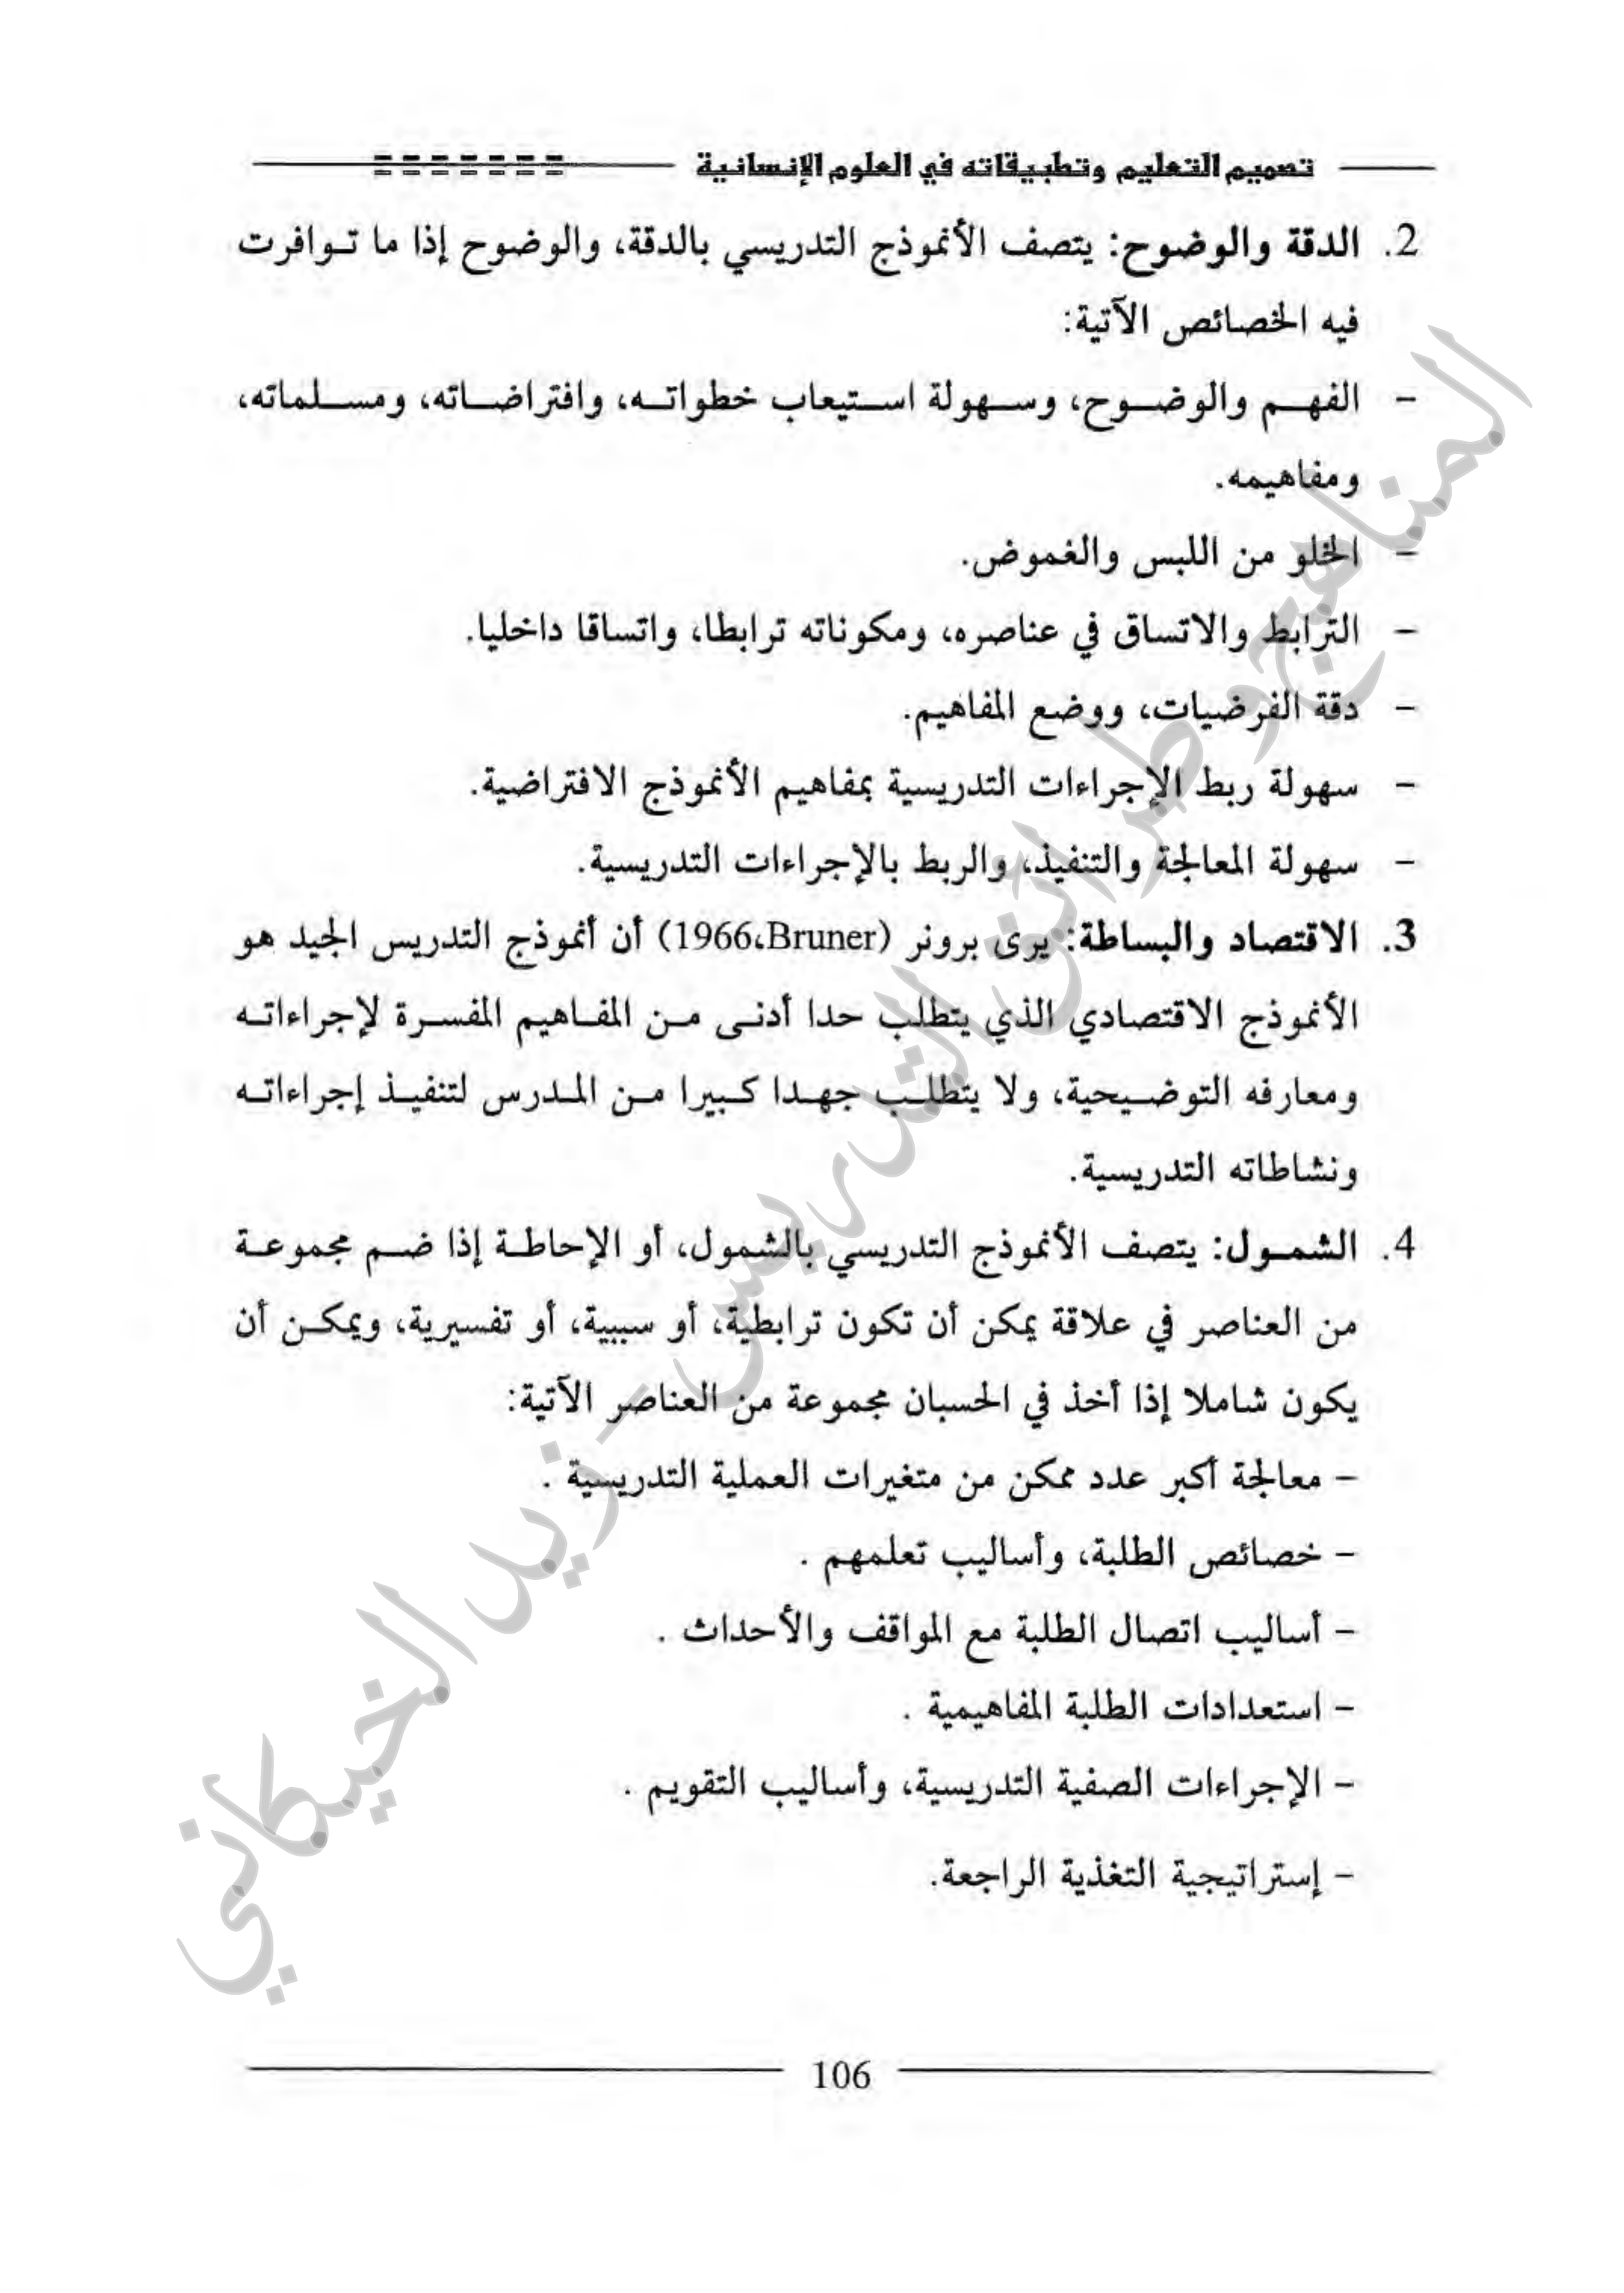 تصميم التعليم وتطبيقاته في العلوم الإنسانية
2. الدقة والوضوح: يتصف الأنموذج التدريسي بالدقة، والوضوح إذا ما توافرت
فيه الخصائص الآتية:
- الفهم والوضوح، وسهولة استيعاب خطواته، وافتراضاته، ومسلماته،
ومفاهيمه.
- الخلو من اللبس والغموض.
- الترابط والاتساق في عناصره، ومكوناته ترابطا، واتساقا داخليا.
- دقة الفرضيات، ووضع المفاهيم.
- سهولة ربط الإجراءات التدريسية بمفاهيم الأنموذج الافتراضية.
- سهولة المعالجة والتنفيذ، والربط بالإجراءات التدريسية.
3. الاقتصاد والبساطة: يرى برونر (Bruner،1966) أن أنموذج التدريس الجيد هو
الأنموذج الاقتصادي الذي يتطلب حدا أدنى من المفاهيم المفسرة لإجراءاته
ومعارفه التوضيحية، ولا يتطلب جهدا كبيرا من المدرس لتنفيذ إجراءاته
ونشاطاته التدريسية.
4. الشمول: يتصف الأنموذج التدريسي بالشمول، أو الإحاطة إذا ضم مجموعة
من العناصر في علاقة يمكن أن تكون ترابطية، أو سببية، أو تفسيرية، ويمكن أن
يكون شاملا إذا أخذ في الحسبان مجموعة من العناصر الآتية:
- معالجة أكبر عدد ممكن من متغيرات العملية التدريسية .
- خصائص الطلبة، وأساليب تعلمهم .
- أساليب اتصال الطلبة مع المواقف والأحداث .
- استعدادات الطلبة المفاهيمية .
- الإجراءات الصفية التدريسية، وأساليب التقويم .
- إستراتيجية التغذية الراجعة.
106
المناهج وطرائق التدريس - زيد الخيكاني